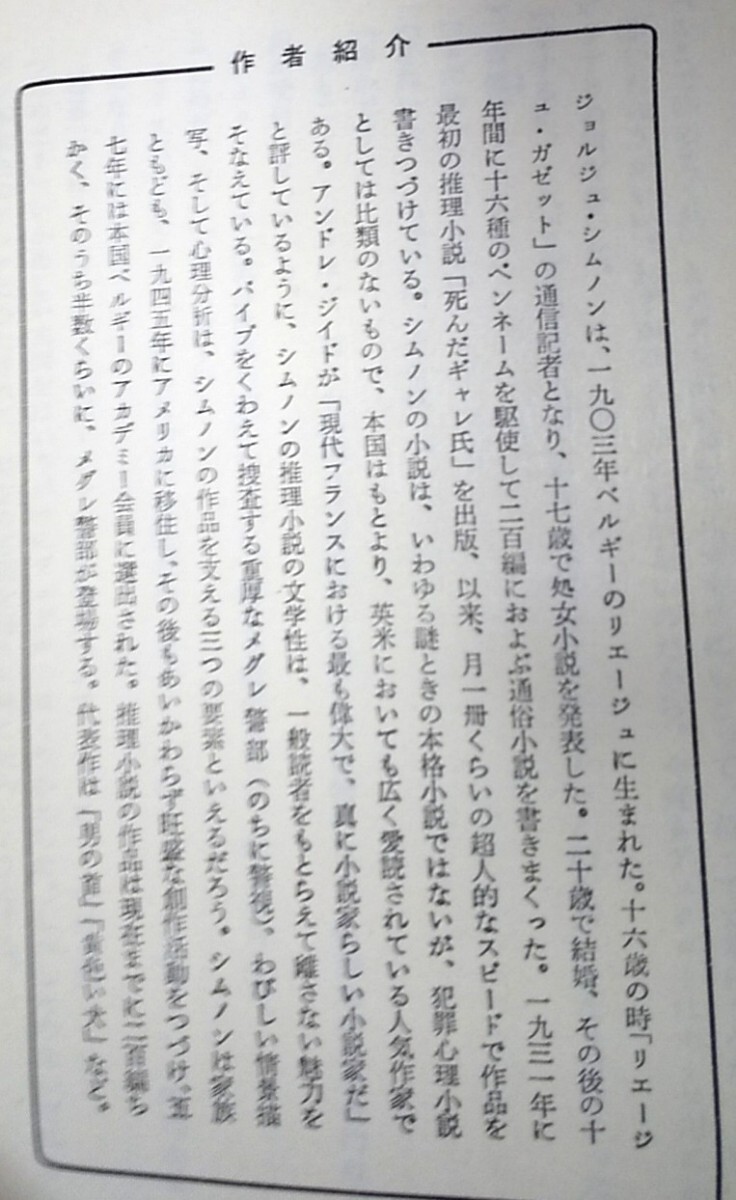 作者紹介
ジョルジュ・シムノンは、一九〇三年ベルギーのリエージュに生まれた。十六歳の時「リエージ
ュ・ガゼット」の通信記者となり、十七歳で処女小説を発表した。二十歳で結婚、その後の十
年間に十六種のペンネームを駆使して二百編におよぶ通俗小説を書きまくった。一九三一年に
最初の推理小説「死んだギャレ氏」を出版、以来、月一冊くらいの超人的なスピードで作品を
書きつづけている。シムノンの小説は、いわゆる謎ときの本格小説ではないが、犯罪心理小説
としては比類のないもので、本国はもとより、英米においても広く愛読されている人気作家で
ある。アンドレ・ジイドが「現代フランスにおける最も偉大で、真に小説家らしい小説家だ」
と評しているように、シムノンの推理小説の文学性は、一般読者をもとらえて離さない魅力を
そなえている。パイプをくわえて捜査する重厚なメグレ警部（のちに警視）、わびしい情景描
写、そして心理分析は、シムノンの作品を支える三つの要素といえるだろう。シムノンは家族
ともども、一九四五年にアメリカに移住し、その後もあいかわらず旺盛な創作活動をつづけ、五
七年には本国ベルギーのアカデミー会員に選出された。推理小説の作品は現在までに二百編ち
かく、そのうち半数くらいに、メグレ警部が登場する。代表作は「男の首」「黄色い犬」など。